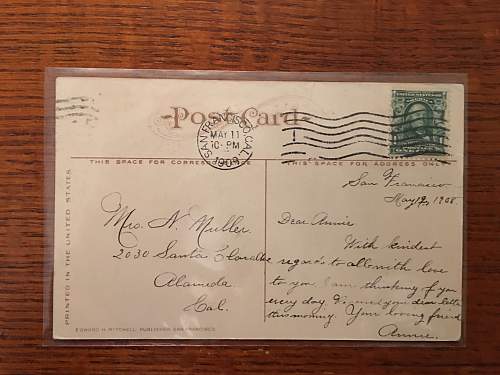 Post Card
SAN FRANCISCO, CAL.
MAY 11
10-PM
1908
THIS SPACE FOR CORRESPONDENCE
THIS SPACE FOR ADDRESS ONLY
PRINTED IN THE UNITED STATES
Mrs. N. Muller
2030 Santa Clara
Alameda
Cal.
EDWARD H. MITCHELL, PUBLISHER, SAN FRANCISCO.
San Francisco
May 1908.
Dear Annie
With kindest
regards to all with love
to you. I am thinking of you
every day. I received your dear letter
this morning. Your loving friend
Annie.